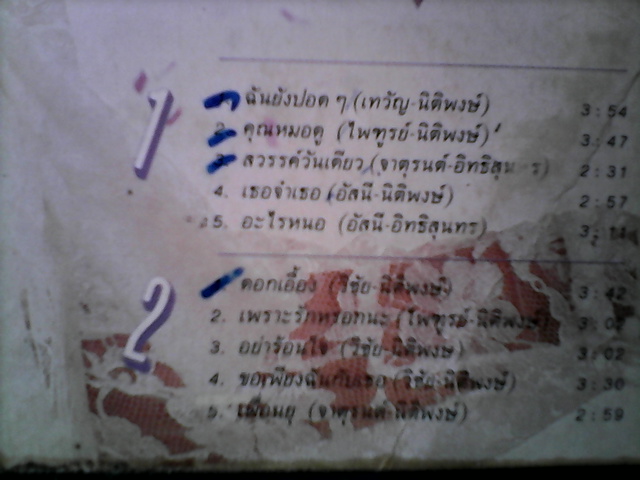 1
ฉันยังปอด ๆ (เทวัญ-นิติพงษ์) 3:54
2. คุณหมอดู (ไพฑูรย์-นิติพงษ์) 3:47
3. สวรรค์วันเดียว (จาตุรนต์-อิทธิสุนทร) 2:31
4. เธอจำเธอ (อัสนี-นิติพงษ์) 2:57
5. อะไรหนอ (อัสนี-อิทธิสุนทร)
2
ดอกเอื้อง (วิชัย-นิติพงษ์) 3:42
2. เพราะรักหรอกนะ (ไพฑูรย์-นิติพงษ์)
3. อย่าร้อนใจ (วิชัย-นิติพงษ์) 3:02
4. ขอเพียงฉันกับเธอ (วิชัย-นิติพงษ์) 3:30
5. เผื่อนยุ (จาตุรนต์-นิติพงษ์) 2:59